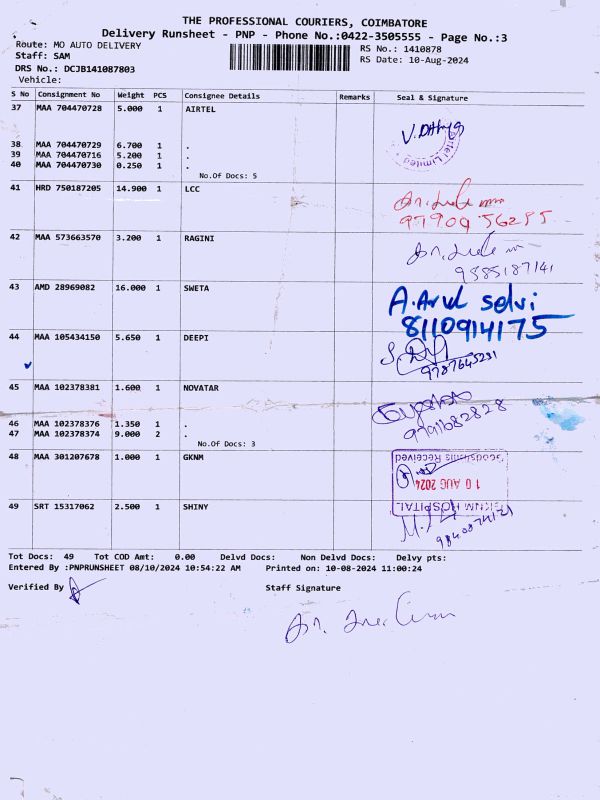 THE PROFESSIONAL COURIERS, COIMBATORE
Delivery Runsheet - PNP - Phone No.:0422-3505555 - Page No.:3
Route: MO AUTO DELIVERY
RS No.: 1410878
Staff: SAM
RS Date: 10-Aug-2024
DRS No.: DCJB141087803
Vehicle:
S No Consignment No Weight PCS Consignee Details Remarks Seal & Signature
37 MAA 704470728 5.000 1 AIRTEL
38 MAA 704470729 6.700 1 .
39 MAA 704470716 5.200 1 .
40 MAA 704470730 0.250 1 .
No.Of Docs: 5
41 HRD 750187205 14.900 1 LCC
42 MAA 573663570 3.200 1 RAGINI
9585187141
43 AMD 28969082 16.000 1 SWETA
A.Arul selvi
8110914175
44 MAA 105434150 5.650 1 DEEPI
9787645231
45 MAA 102378381 1.600 1 NOVATAR
46 MAA 102378376 1.350 1 .
9791682828
47 MAA 102378374 9.000 2 .
No.Of Docs: 3
48 MAA 301207678 1.000 1 GKNM
Goods/Bills Received
10 AUG 2024
GKNM HOSPITAL
49 SRT 15317062 2.500 1 SHINY
Tot Docs: 49 Tot COD Amt: 0.00 Delvd Docs: Non Delvd Docs: Delvy pts:
Entered By :PNPRUNSHEET 08/10/2024 10:54:22 AM Printed on: 10-08-2024 11:00:24
Verified By
Staff Signature